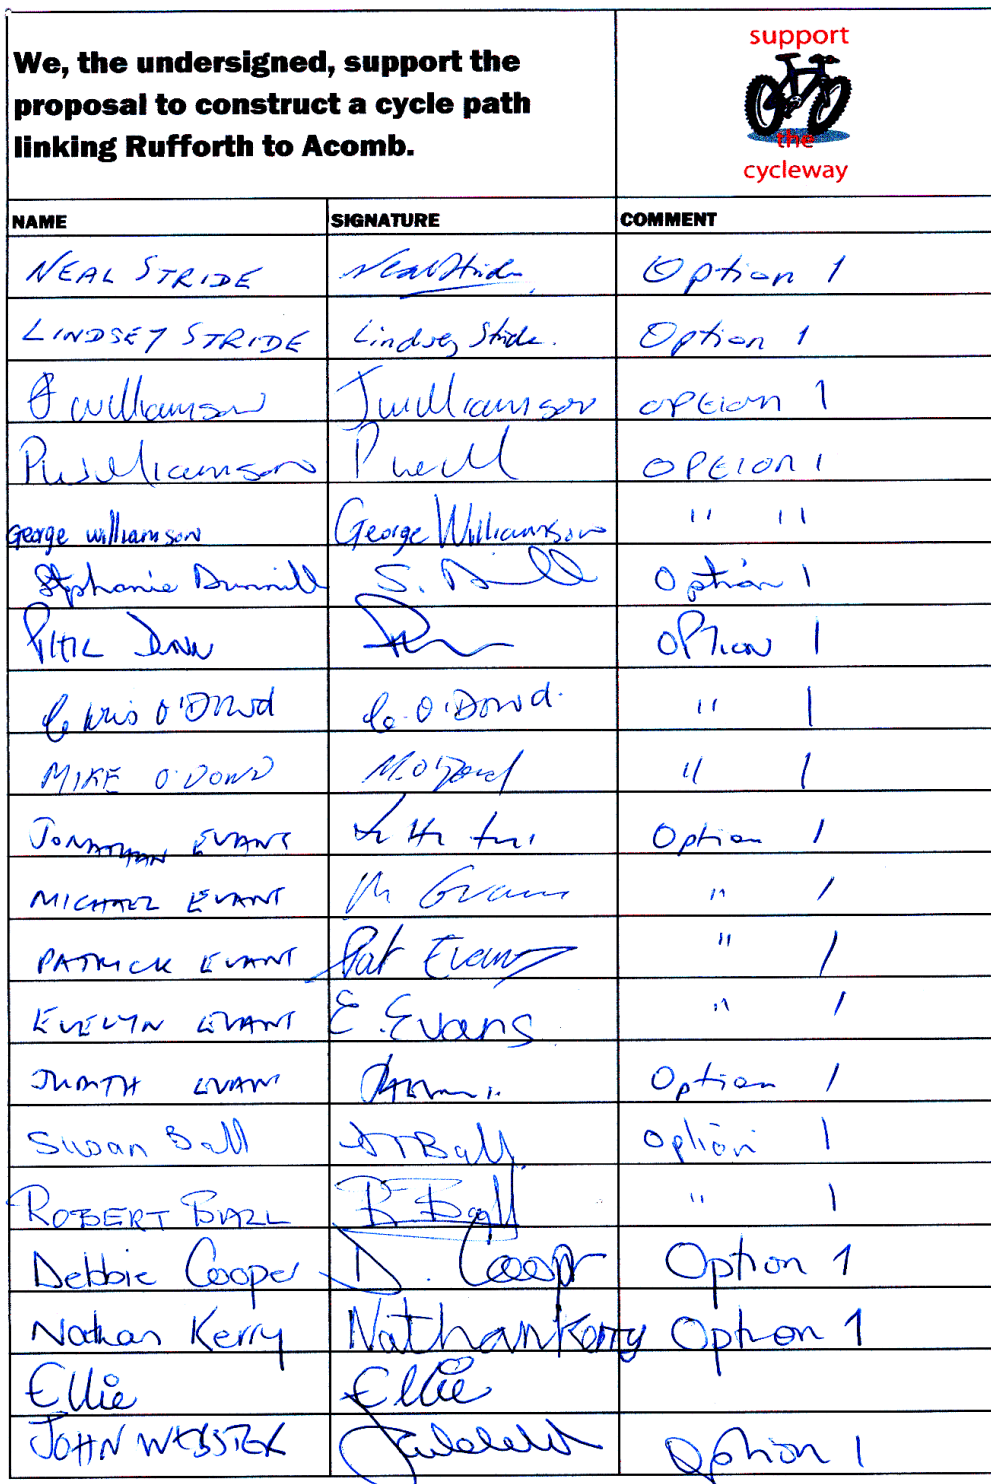 We, the undersigned, support the
proposal to construct a cycle path
linking Rufforth to Acomb.
support
the
cycleway
NAME SIGNATURE COMMENT
NEAL STRIDE Neal Stride Option 1
LINDSEY STRIDE Lindsey Stride. Option 1
J Williamson J Williamson OPtion 1
P Williamson P Will OPtion 1
George williamson George Williamson " "
Stephanie Dunnill S. Option 1
PHIL DUNN OPtion 1
Chris O'Dowd C. O'Dowd. " 1
MIKE O'DOWD M. O'Dowd " 1
JONATHAN EVANS Option 1
MICHAEL EVANS M Evans " 1
PATRICK EVANS Pat Evans " 1
EVELYN EVANS E. Evans " 1
JUDITH EVANS Option 1
Susan Ball Ball Option 1
ROBERT BALL R Ball " 1
Debbie Cooper D. Cooper Option 1
Nathan Kerry Nathan Kerry Option 1
Ellie Ellie
JOHN WEBSTER Option 1